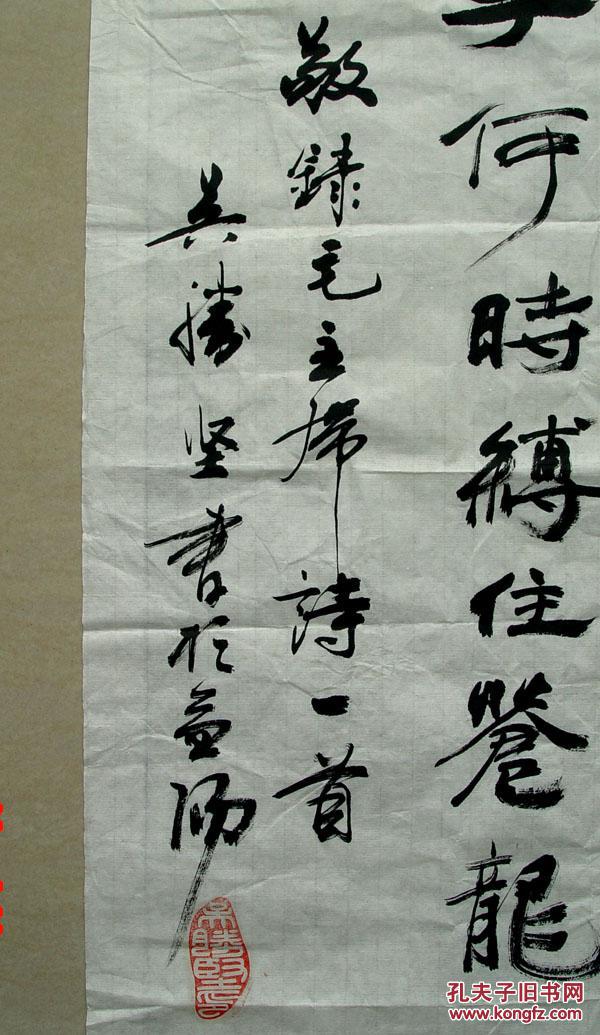 手何時縛住蒼龍
敬録毛主席詩一首
吴勝坚書於益陽
孔夫子旧书网
www.kongfz.com